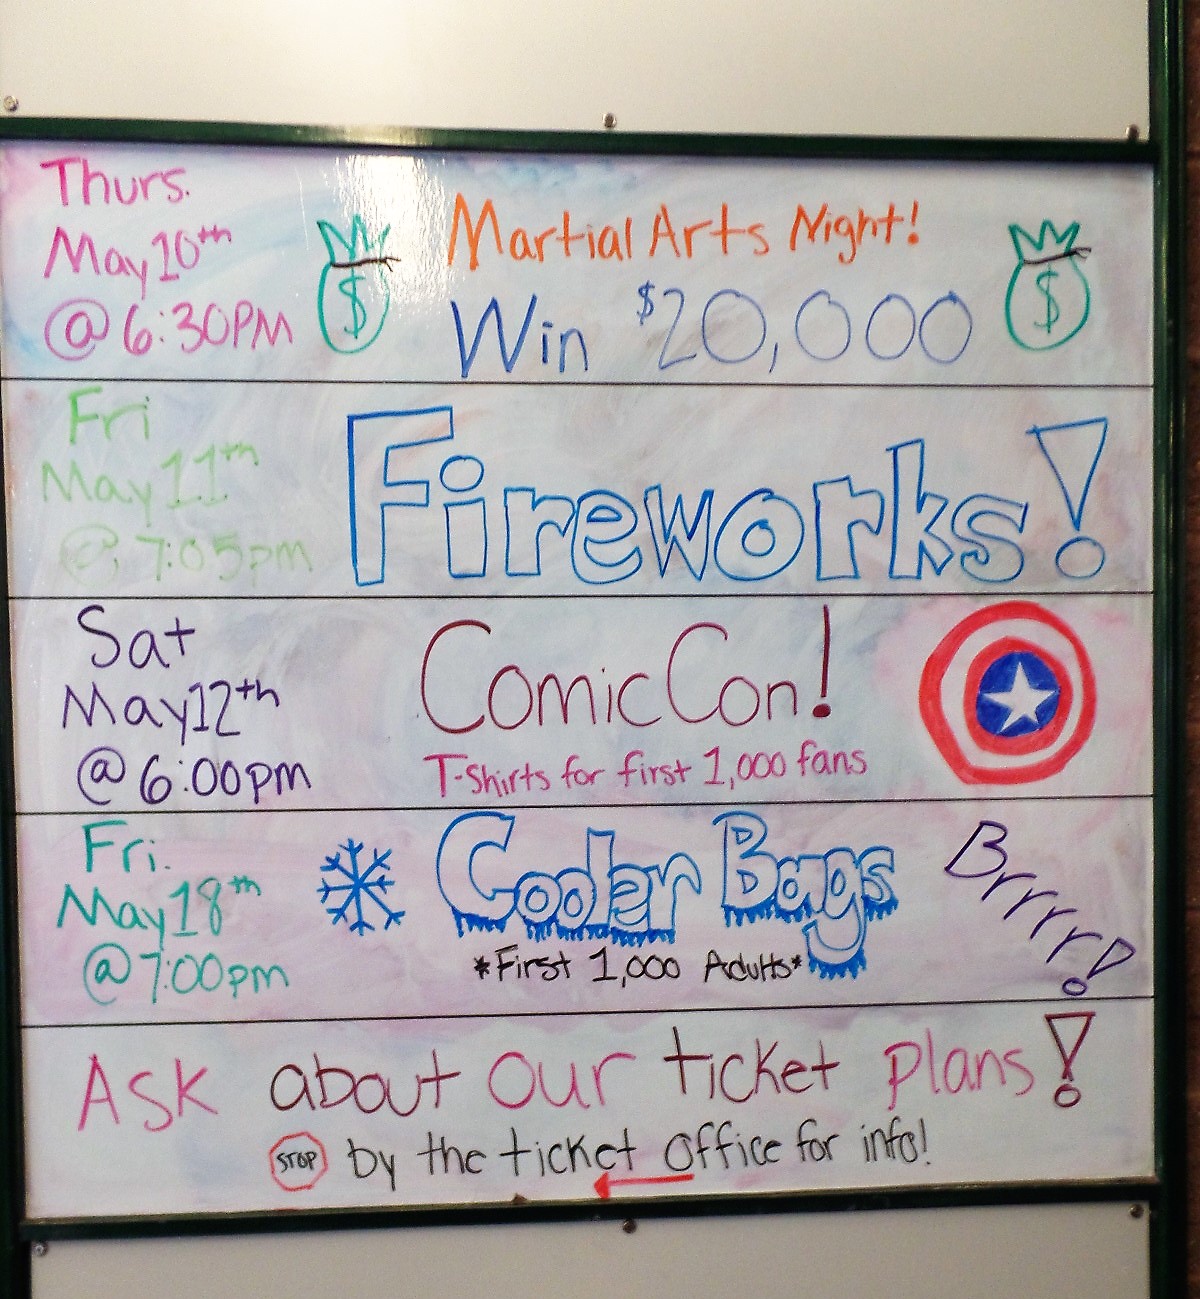 Thurs.
May 10th
@ 6:30PM
$
Martial Arts Night!
Win $20,000
$
Fri
May 11th
@ 7:05pm
Fireworks!
Sat
May 12th
@ 6:00pm
Comic Con!
T-Shirts for first 1,000 fans
Fri.
May 18th
@ 7:00pm
Cooler Bags
*First 1,000 Adults*
Brrrr!
Ask about our ticket plans!
STOP by the ticket office for info!